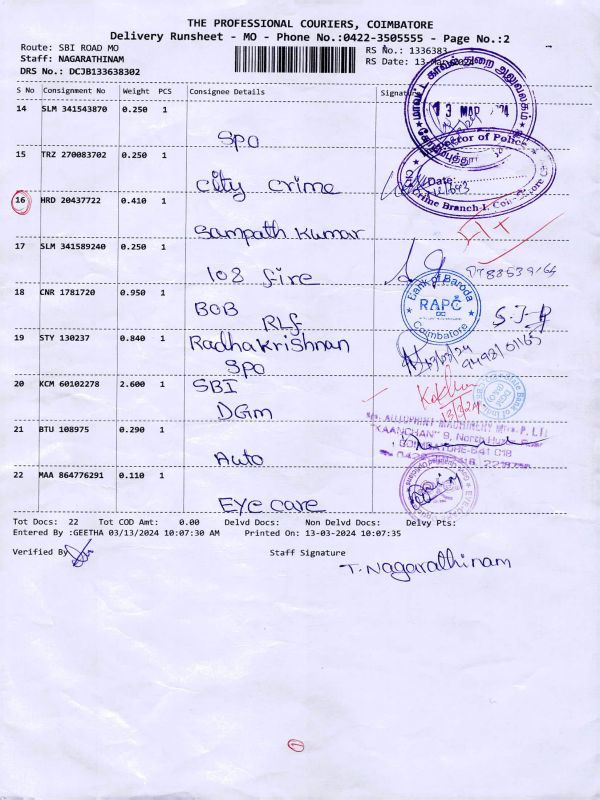 THE PROFESSIONAL COURIERS, COIMBATORE
Delivery Runsheet - MO - Phone No.:0422-3505555 - Page No.:2
Route: SBI ROAD MO
RS No.: 1336383
Staff: NAGARATHINAM
RS Date: 13-Mar-2024
DRS No.: DCJB133638302
S No Consignment No Weight PCS Consignee Details Signature
14 SLM 341543870 0.250 1
SPO
மாவட்ட காவல் துறை அலுவலகம்
13 MAR 24
15 TRZ 270083702 0.250 1
City Crime
Inspector of Police
Date:
Crime Branch-I, Coimbatore
16 HRD 20437722 0.410 1
Sampath Kumar
17 SLM 341589240 0.250 1
108 fire
18 CNR 1781720 0.950 1
BOB
RLF
Bank of Baroda
RAPC
Coimbatore
19 STY 130237 0.840 1
Radhakrishnan
SPO
13/03/24
20 KCM 60102278 2.600 1
SBI
DGM
State Bank of India
21 BTU 108975 0.290 1
Auto
"KAANCHAN" 9, North Huzur Road
COIMBATORE-641 018
22 MAA 864776291 0.110 1
Eye care
Tot Docs: 22 Tot COD Amt: 0.00 Delvd Docs: Non Delvd Docs: Delvy Pts:
Entered By :GEETHA 03/13/2024 10:07:30 AM Printed On: 13-03-2024 10:07:35
Verified By Staff Signature
T. Nagarathinam
1